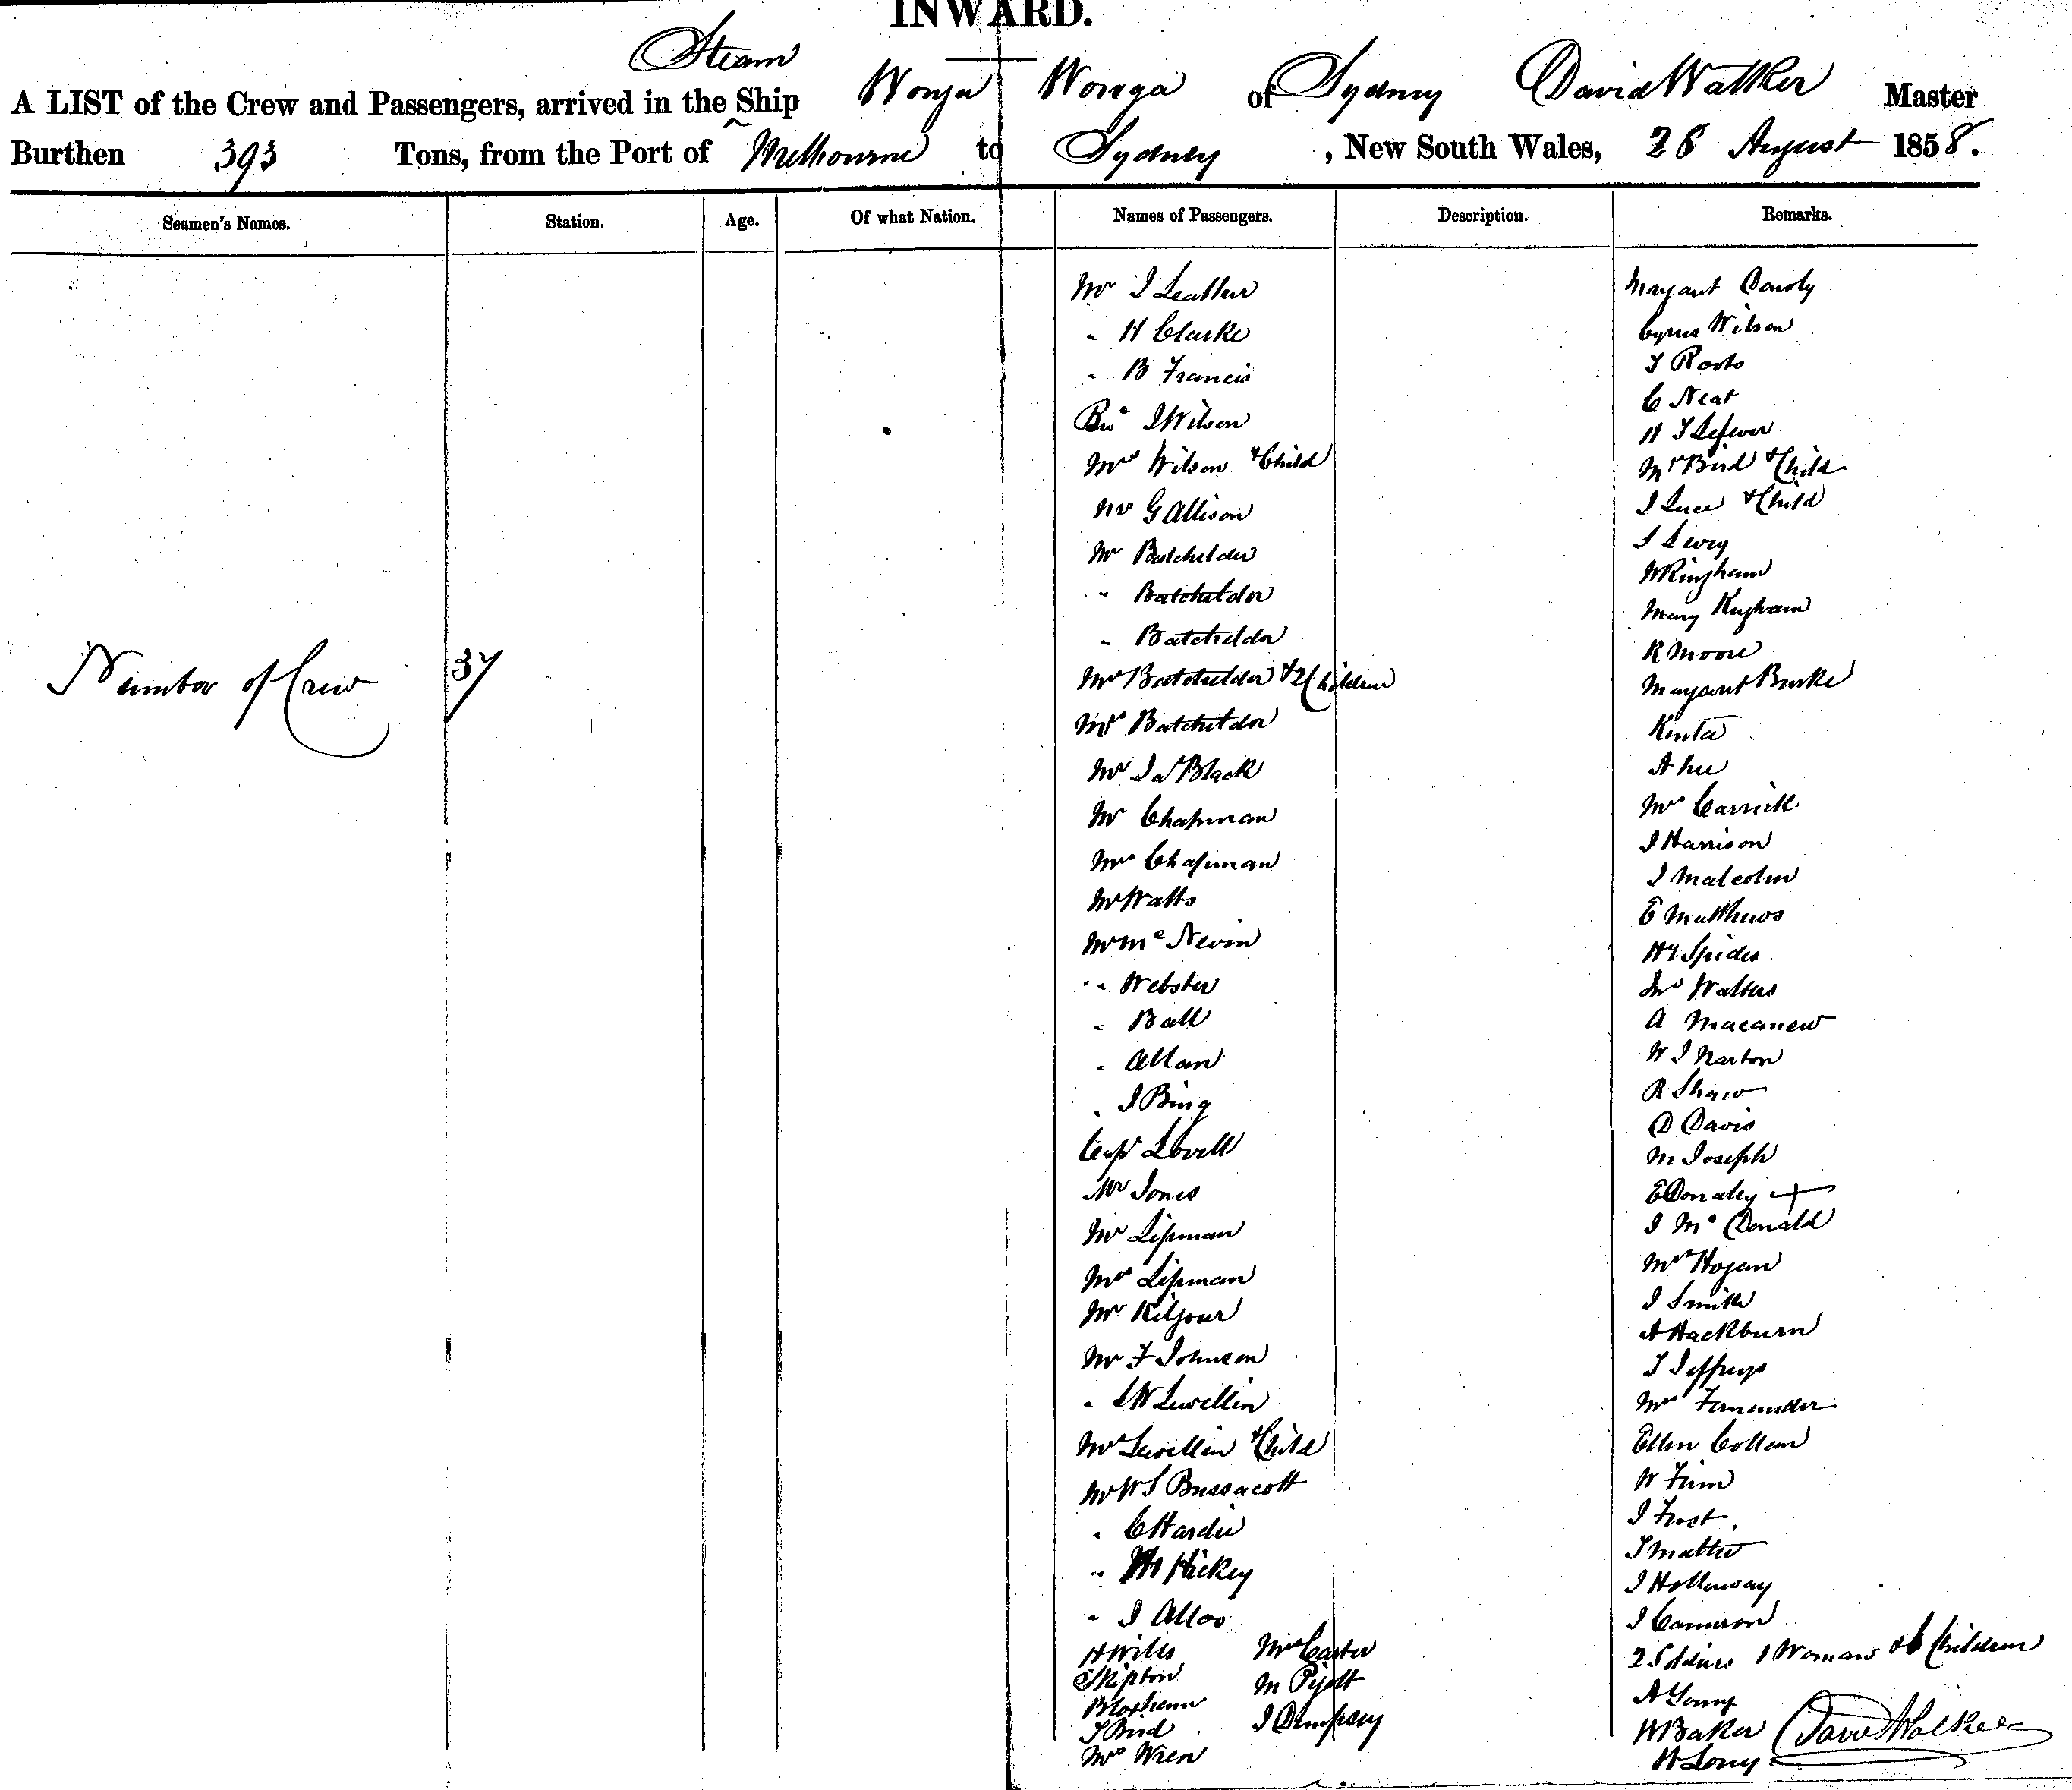 INWARD.
Steam
A LIST of the Crew and Passengers, arrived in the Ship Wonga Wonga of Sydney David Walker Master
Burthen 393 Tons, from the Port of Melbourne to Sydney, New South Wales, 28 August 1858.
Seamen's Names. Station. Age. Of what Nation. Names of Passengers. Description. Remarks.
Number of Crew 37
Mr J Leather
" H Clarke
" B Francis
Revd J Wilson
Mrs Wilson & Child
Mr G Allison
Mr Batchelder
" Batchelder
" Batchelder
Mrs Batchelder & 2 Children
Batchelder
Mr Jas Black
Mr Chapman
Mrs Chapman
Mr Watts
Mr Mc Nevin
" Webster
" Ball
" Allan
" J Bing
Capt Lovell
Mr Jones
Mr Lipman
Mrs Lipman
Mr Kilgour
Mr F Johnson
" Lewellin
Mrs Lewellin & Child
Mr W S Bussacott
" C Hardie
" Hickey
" J Alloo
H Wills Mrs Carter
Skipton M Pigott
Bloxham J Dempsey
T Bird
Mrs Wren
Margaret
Cyrus Wilson
T Roots
C Neat
Mrs Bird & Child
J Luce & Child
J Levey
W Kingham
Mary Kingham
R Moore
Margaret Burke
Mrs Carrick
J Harrison
J Malcolm
E Matthews
Hy Spider
Walters
A
W J Narton
R Shaw
D Davis
M Joseph
E Donaley
J Mc Donald
Mrs Hogan
J Smith
A Hackburn
T Jeffreys
Mrs Fernander
Ellen
W Finn
J Frost
J Holloway
J Cameron
2 Soldiers 1 Woman & 6 Children
A Young
H Baker David Walker
H Long